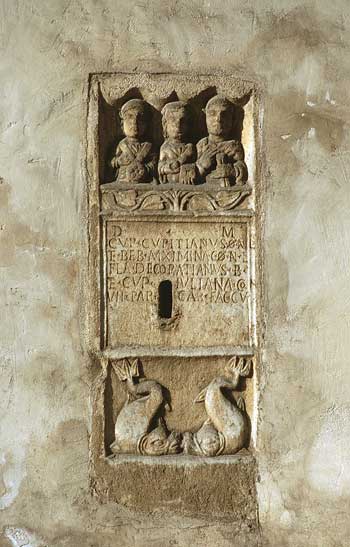 D M
CVP CVPITIANVS
ET BEB MAXIMINA CON
FLA DECORATIANVS B
E CVP IVLIANA CO
VII PAR CAR FAC CV